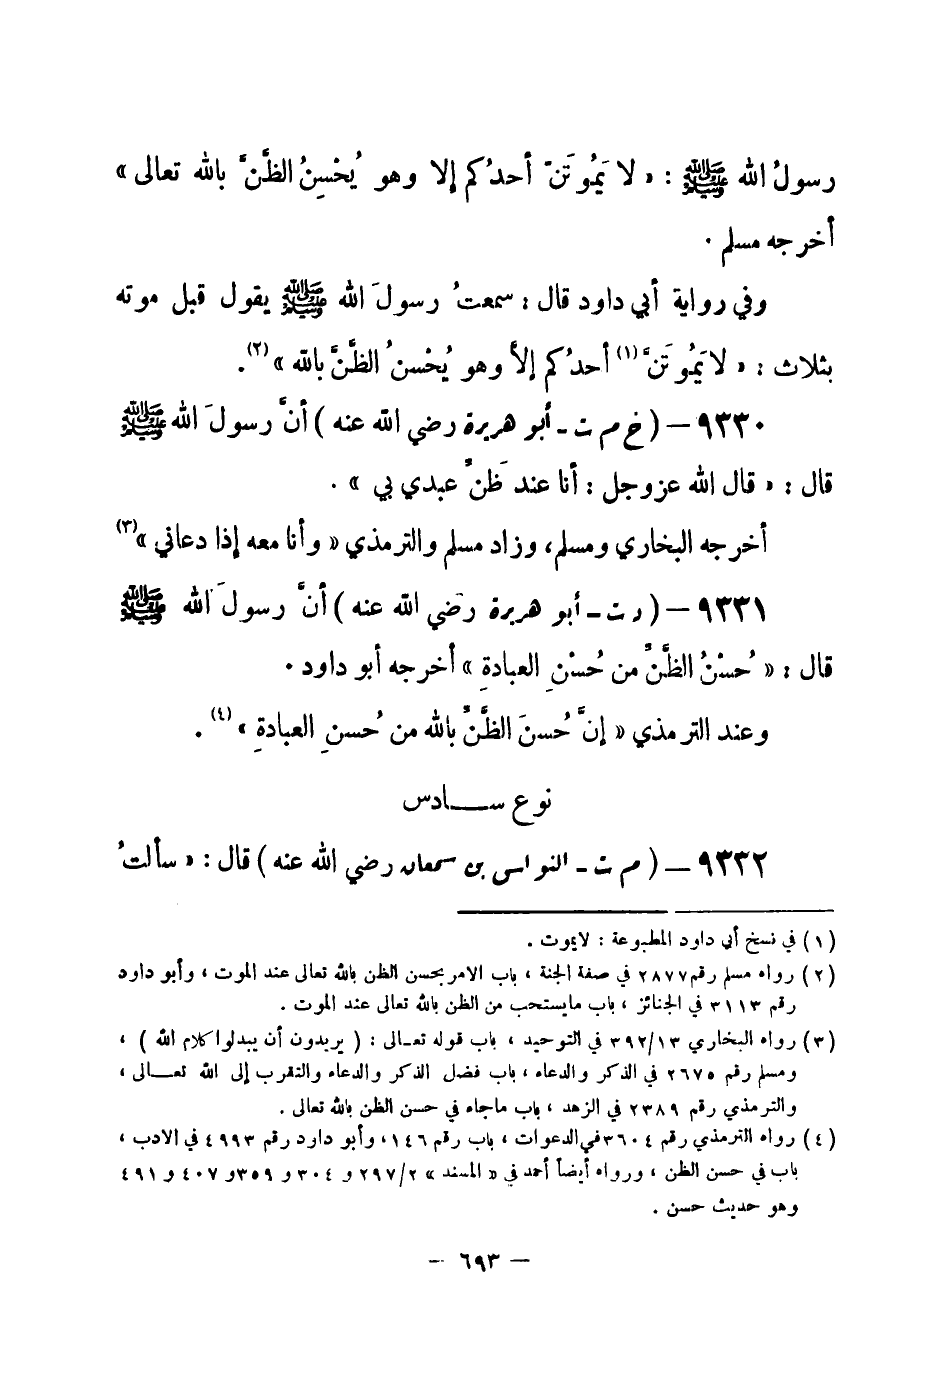 رسولُ الله ﷺ : « لا يَمُوتَنّ أحدُكم إلا وهو يُحْسِنُ الظَّنَّ بالله تعالى »
أخرجه مسلم .
وفي رواية أبي داود قال : سمعتُ رسولَ الله ﷺ يقول قبل موته
بثلاث : « لا يَمُوتَنَّ (١) أحدُكم إلاَّ وهو يُحْسنُ الظَّنَّ بالله » (٢) .
٩٣٣٠ – ( خ م ت - أبو هريرة رضي الله عنه ) أنَّ رسولَ الله ﷺ
قال : « قال الله عز وجل : أنا عند ظَنِّ عبدي بي » .
أخرجه البخاري ومسلم، وزاد مسلم والترمذي « وأنا معه إذا دعاني » (٣)
٩٣٣١ – ( د ت - أبو هريرة رضي الله عنه ) أنَّ رسولَ الله ﷺ
قال : « حُسْنُ الظَّنِّ من حُسْنِ العبادةِ » أخرجه أبو داود .
وعند الترمذي « إنَّ حُسنَ الظَّنِّ بالله من حُسنِ العبادةِ » (٤) .
نوع ســـادس
٩٣٣٢ – ( م ت - النواس بن سمعان رضي الله عنه ) قال : « سألتُ
(١) في نسخ أبي داود المطبوعة : لا يموت .
(٢) رواه مسلم رقم ٢٨٧٧ في صفة الجنة ، باب الامر بحسن الظن بالله تعالى عند الموت ، وأبو داود
رقم ٣١١٣ في الجنائز ، باب ما يستحب من الظن بالله تعالى عند الموت .
(٣) رواه البخاري ٣٩٢/١٣ في التوحيد ، باب قوله تعـالى : ( يريدون أن يبدلوا كلام الله ) ،
ومسلم رقم ٢٦٧٥ في الذكر والدعاء ، باب فضل الذكر والدعاء والتقرب إلى الله تعـــالى ،
والترمذي رقم ٢٣٨٩ في الزهد ، باب ماجاء في حسن الظن بالله تعالى .
(٤) رواه الترمذي رقم ٣٦٠٤ في الدعوات ، باب رقم ١٤٦، وأبو داود رقم ٤٩٩٣ في الادب ،
باب في حسن الظن ، ورواه أيضاً أحمد في « المسند » ٢٩٧/٢ و ٣٠٤ و ٣٥٩ و ٤٠٧ و ٤٩١
وهو حديث حسن .
– ٦٩٣ –